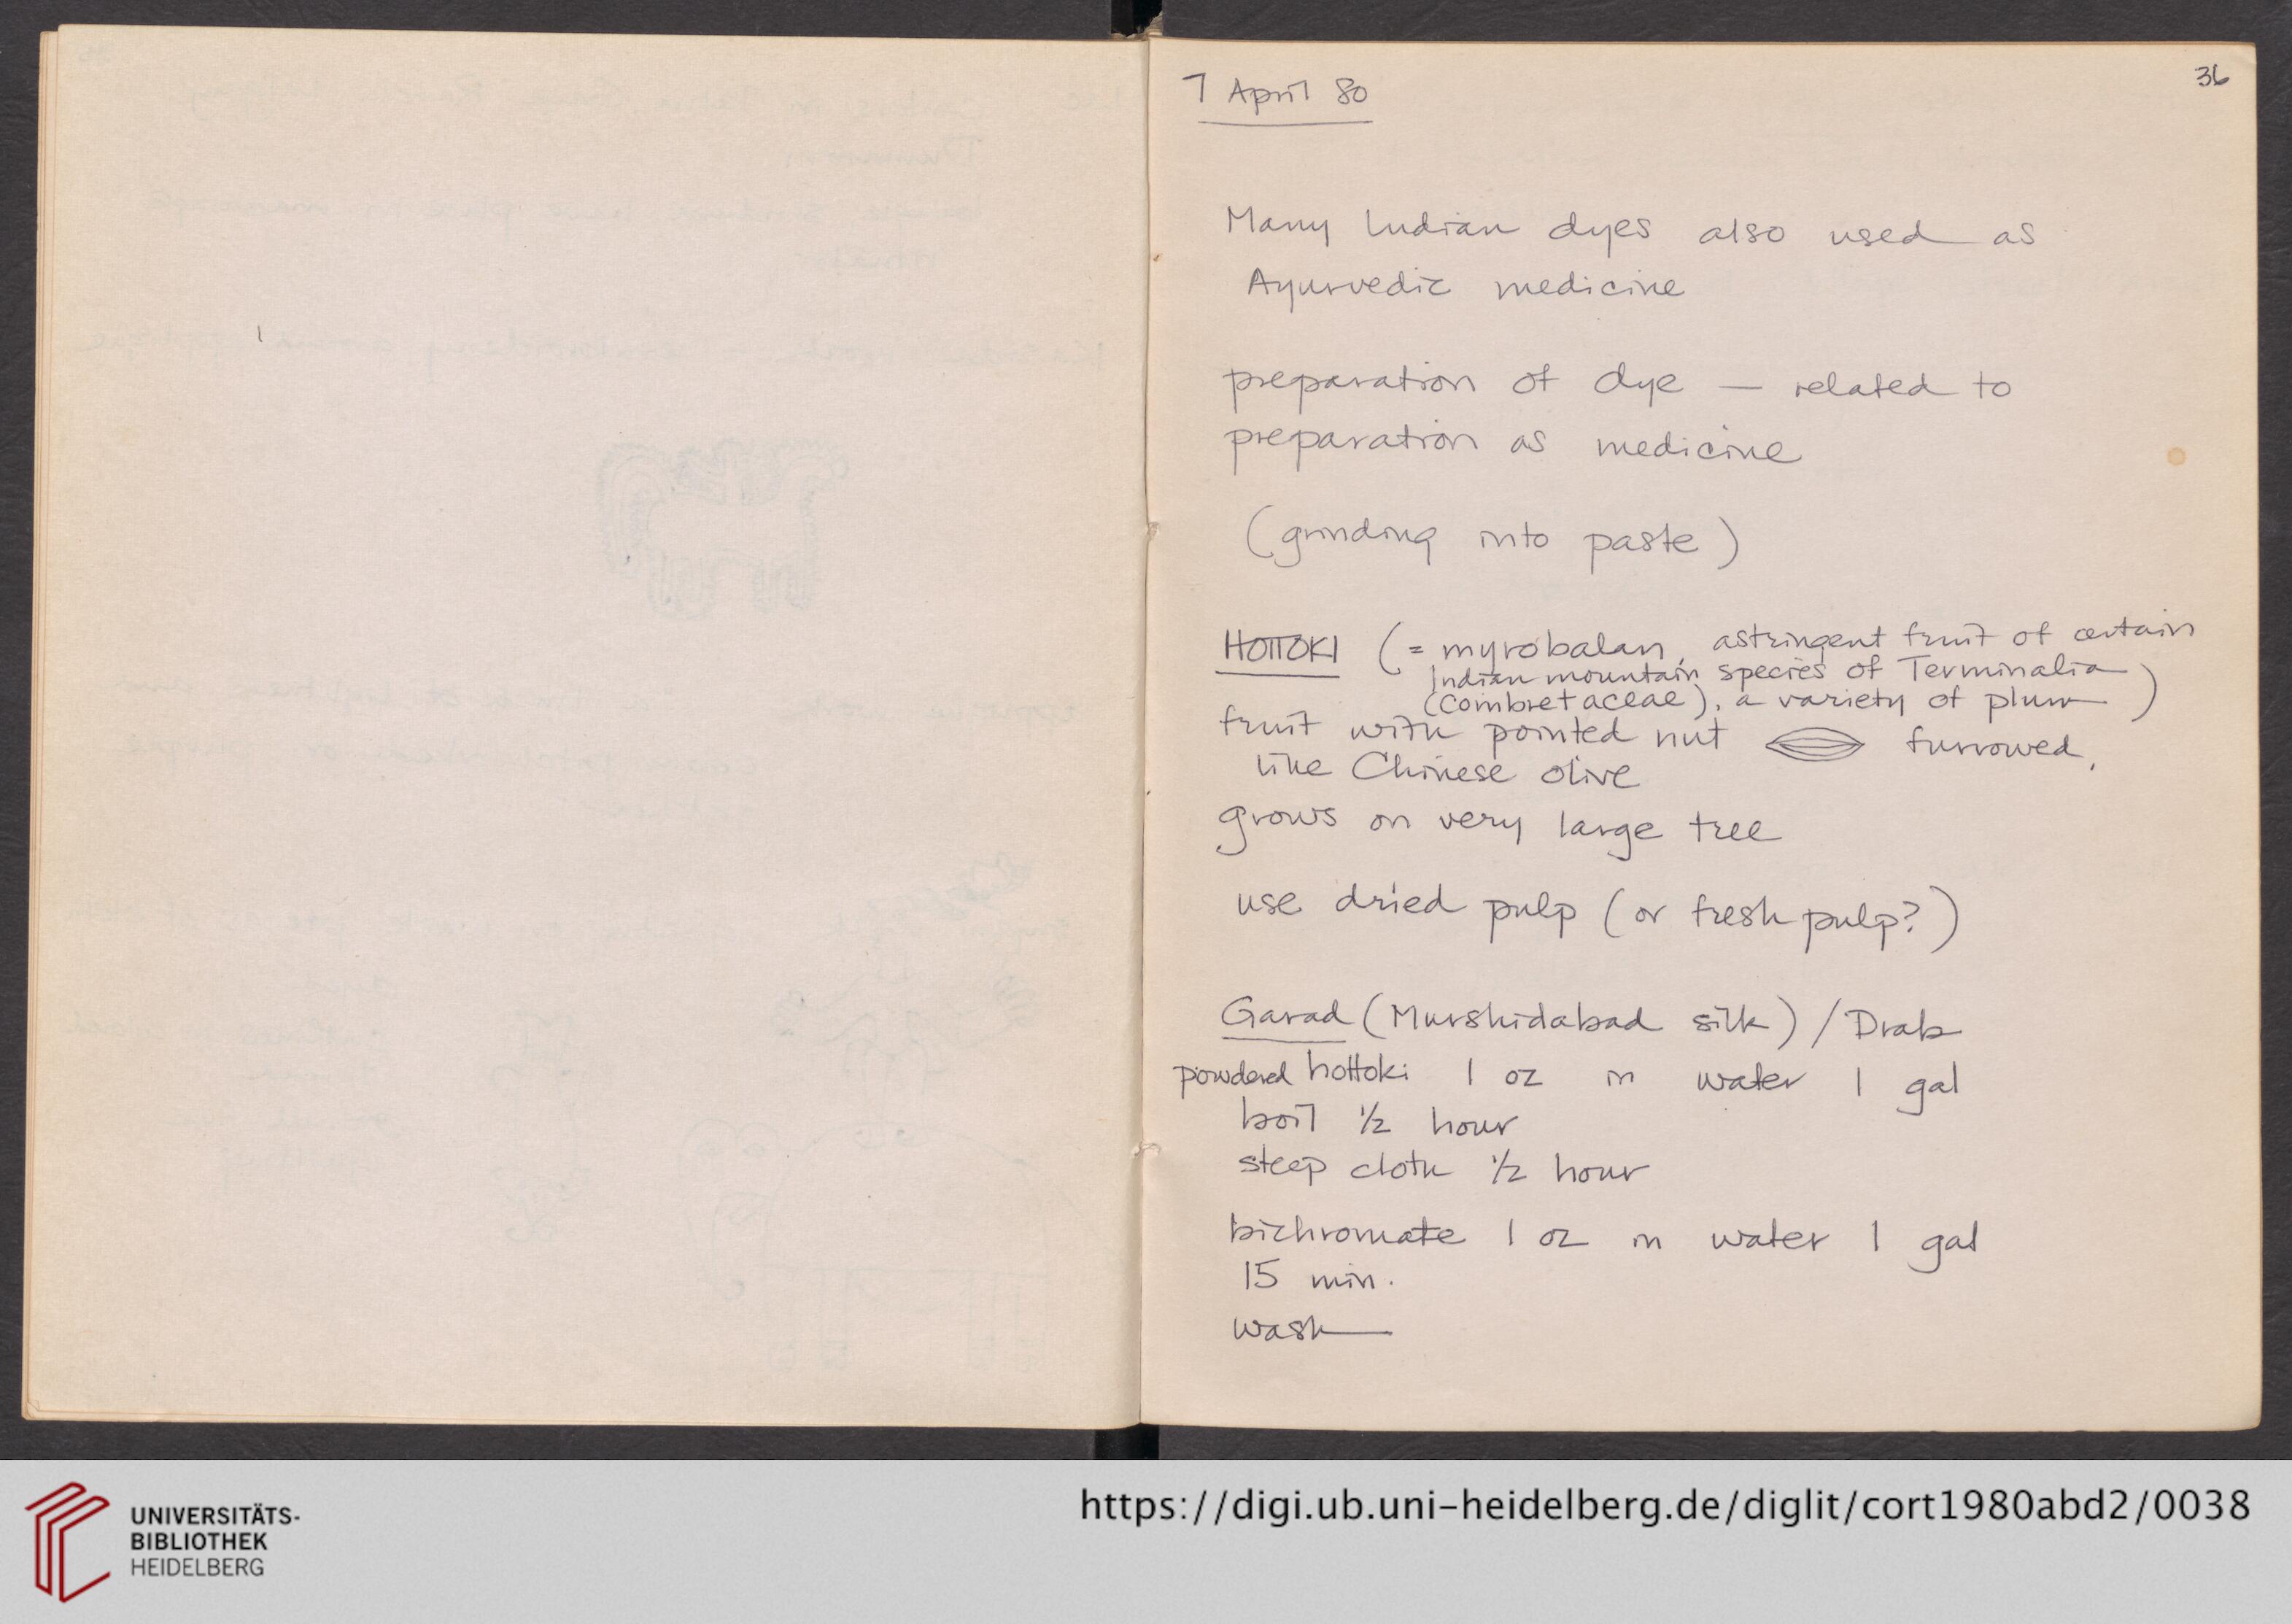 7 April 80
36
Many Indian dyes also used as
Ayurvedic medicine
preparation of dye — related to
preparation as medicine
(grinding into paste)
HOTTOKI (= myrobalan, astringent fruit of certain
Indian mountain species of Terminalia
(Combretaceae), a variety of plum)
fruit with pointed nut furrowed,
like Chinese olive
grows on very large tree
use dried pulp (or fresh pulp?)
Garad (Murshidabad silk) / Drab
powdered hottoki 1 oz in water 1 gal
boil 1/2 hour
steep cloth 1/2 hour
bichromate 1 oz in water 1 gal
15 min.
wash
UNIVERSITÄTS-
BIBLIOTHEK
HEIDELBERG
https://digi.ub.uni-heidelberg.de/diglit/cort1980abd2/0038